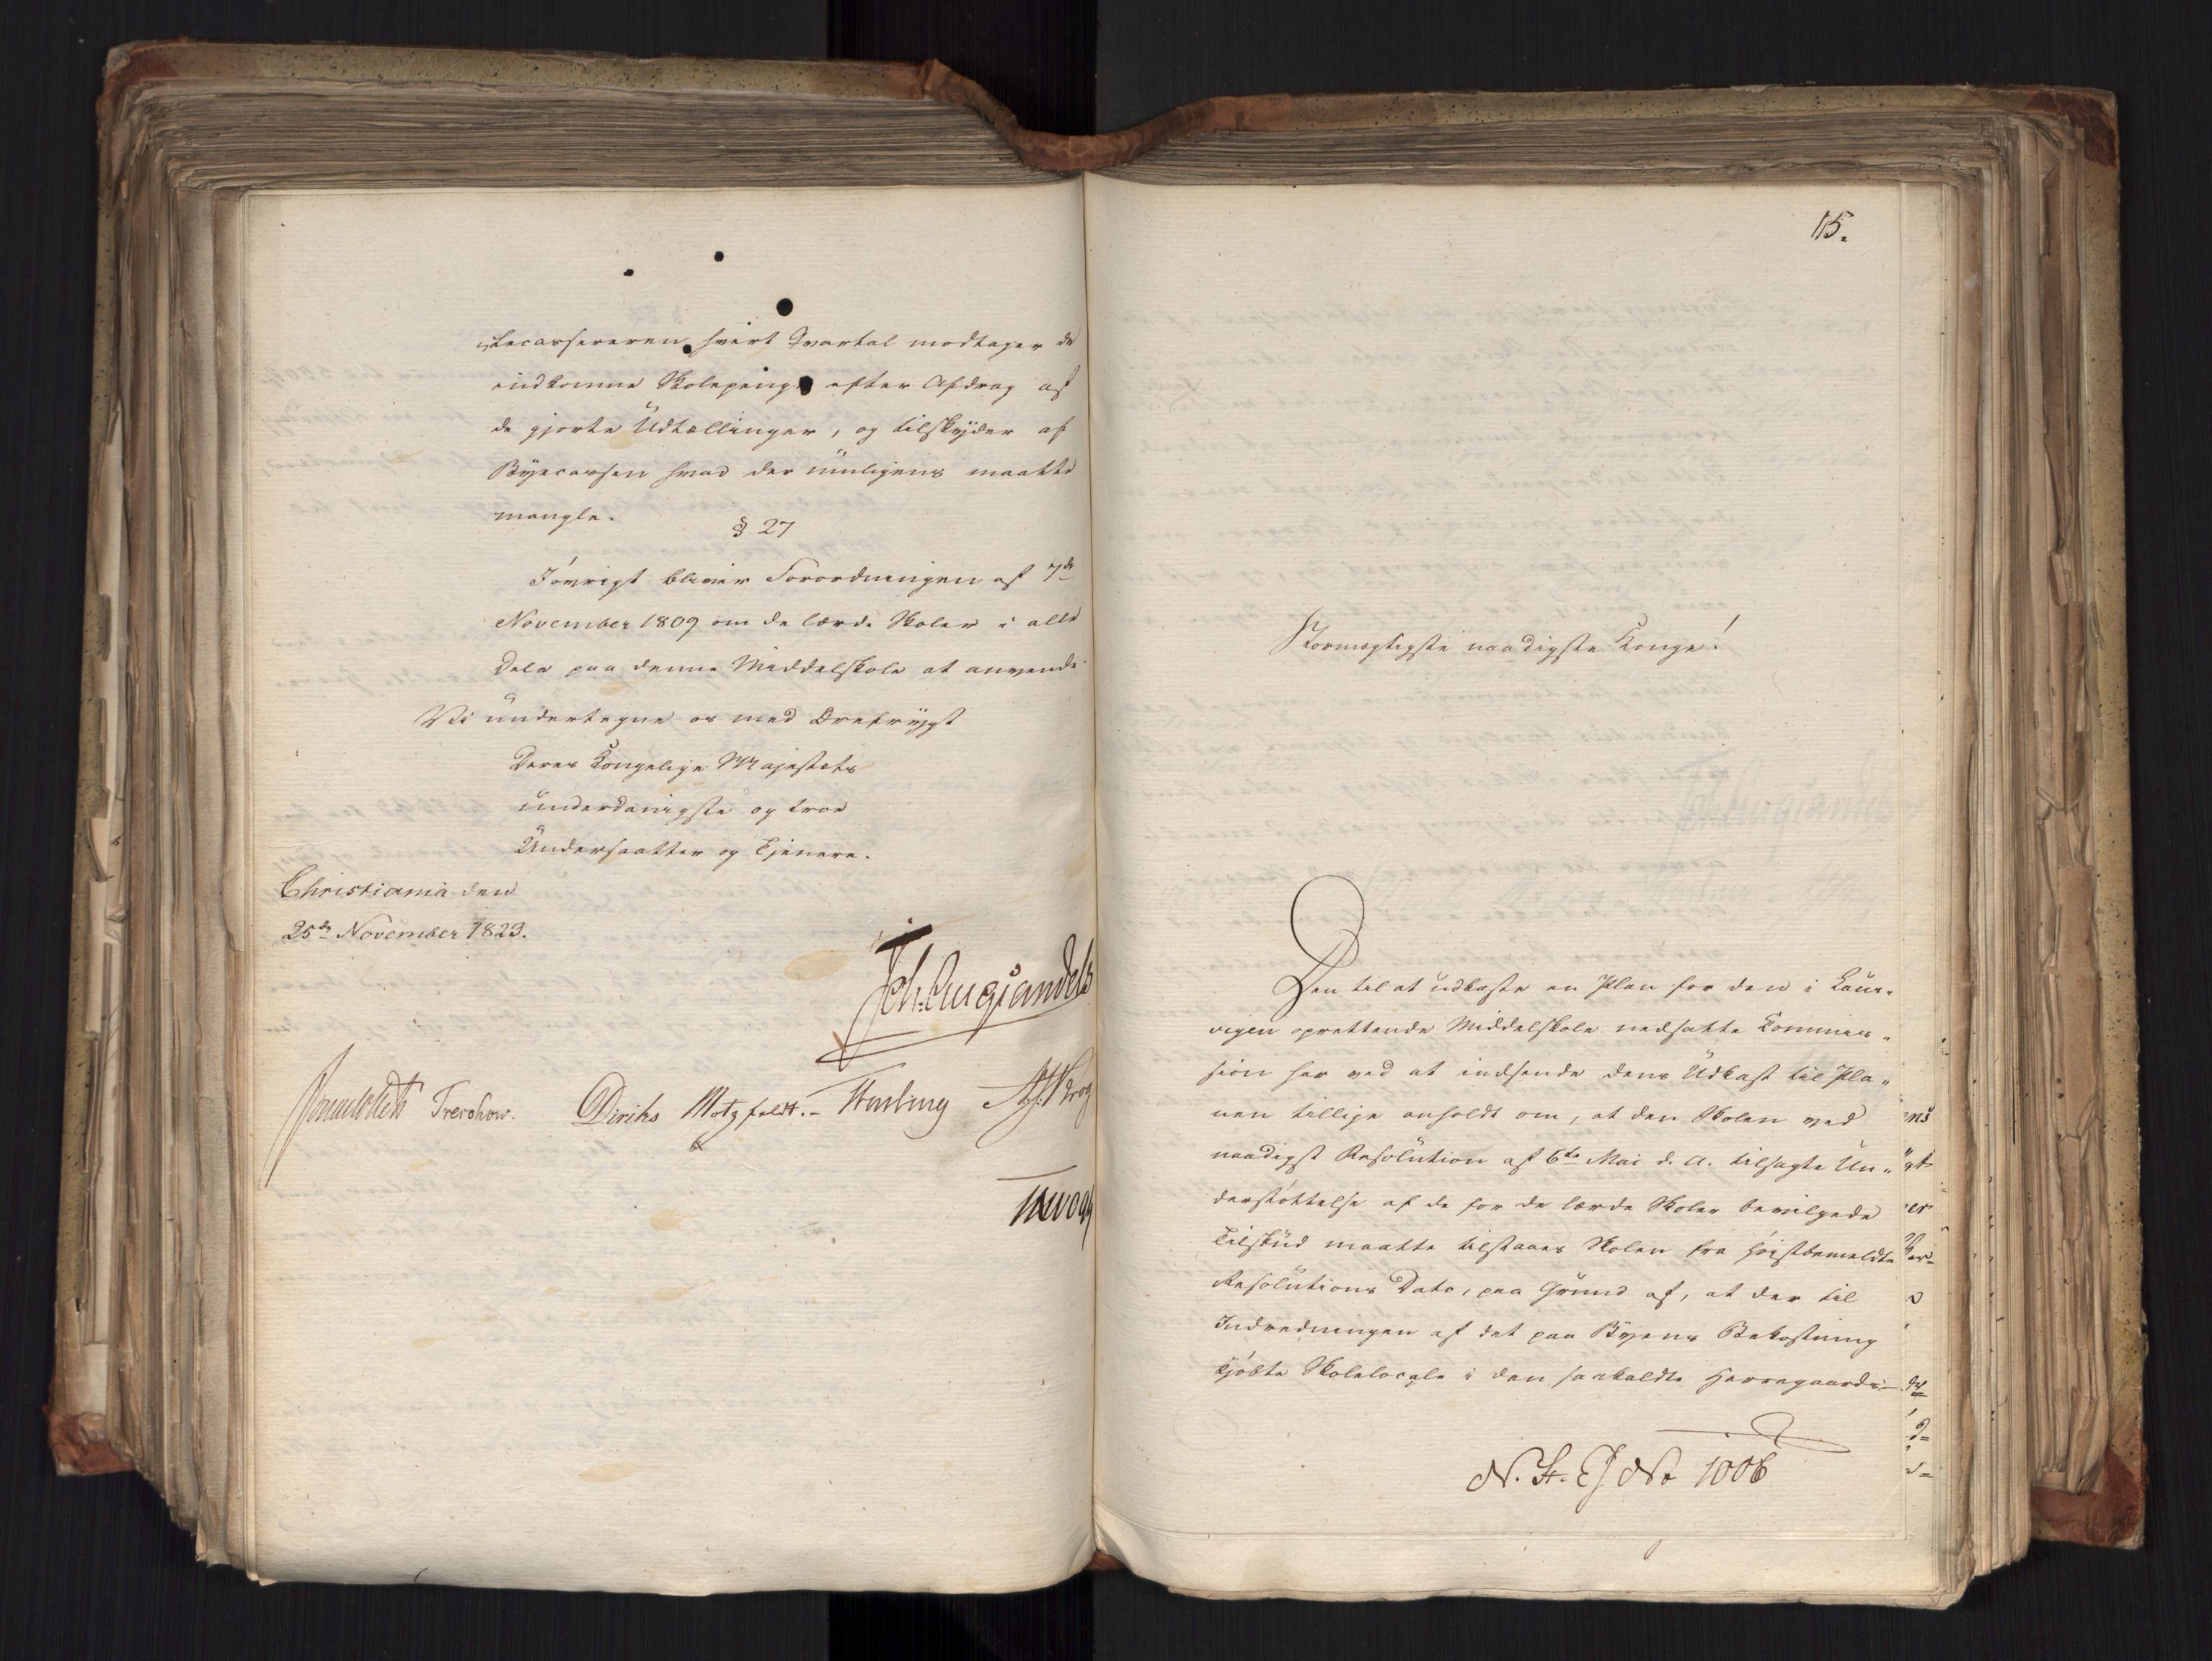 stecasſereren hvert Qvartal modtager de
indkomne Skolepenge efter Afdrag af
de gjorte Udtællinger, og tilskyder af
Byecasſen hvad der muligens maatte
mangle.
§ 27
Iøvrigt bliver Forordningen af 7de
November 1809 om de lærde Skoler i alle
Dele paa denne Middelskole at anvende.
Vi undertegne os med Ærefrygt
Deres Kongelige Majestæts
underdanigste og troe
Undersaatter og Tjenere.
Christiania den
25de November 1823.
Joh. Aug. Sandels
Sommerhielm Treschow. Diriks Motzfeldt. Fasting A. J. Krog
115.
Stormægtigste naadigste Konge!
Den til at udkaste en Plan for den i Laur-
vigen oprettende Middelskole nedsatte Kommis-
sion har ved at indsende dens Udkast til Pla-
nen tillige anholdt om, at den Skolen ved
naadigst Resolution af 6te Mai d. A. tilsagte Un-
derstøttelse af de for de lærde Skoler bevilgede
Tilskud maatte tilstaaes Skolen fra høistbemeldte
Resolutions Dato, paa Grund af, at der til
Indredningen af det paa Byens Bekostning
kjøbte Skolelocale i den saakaldte Herregaards-
N. St. E J No 1006